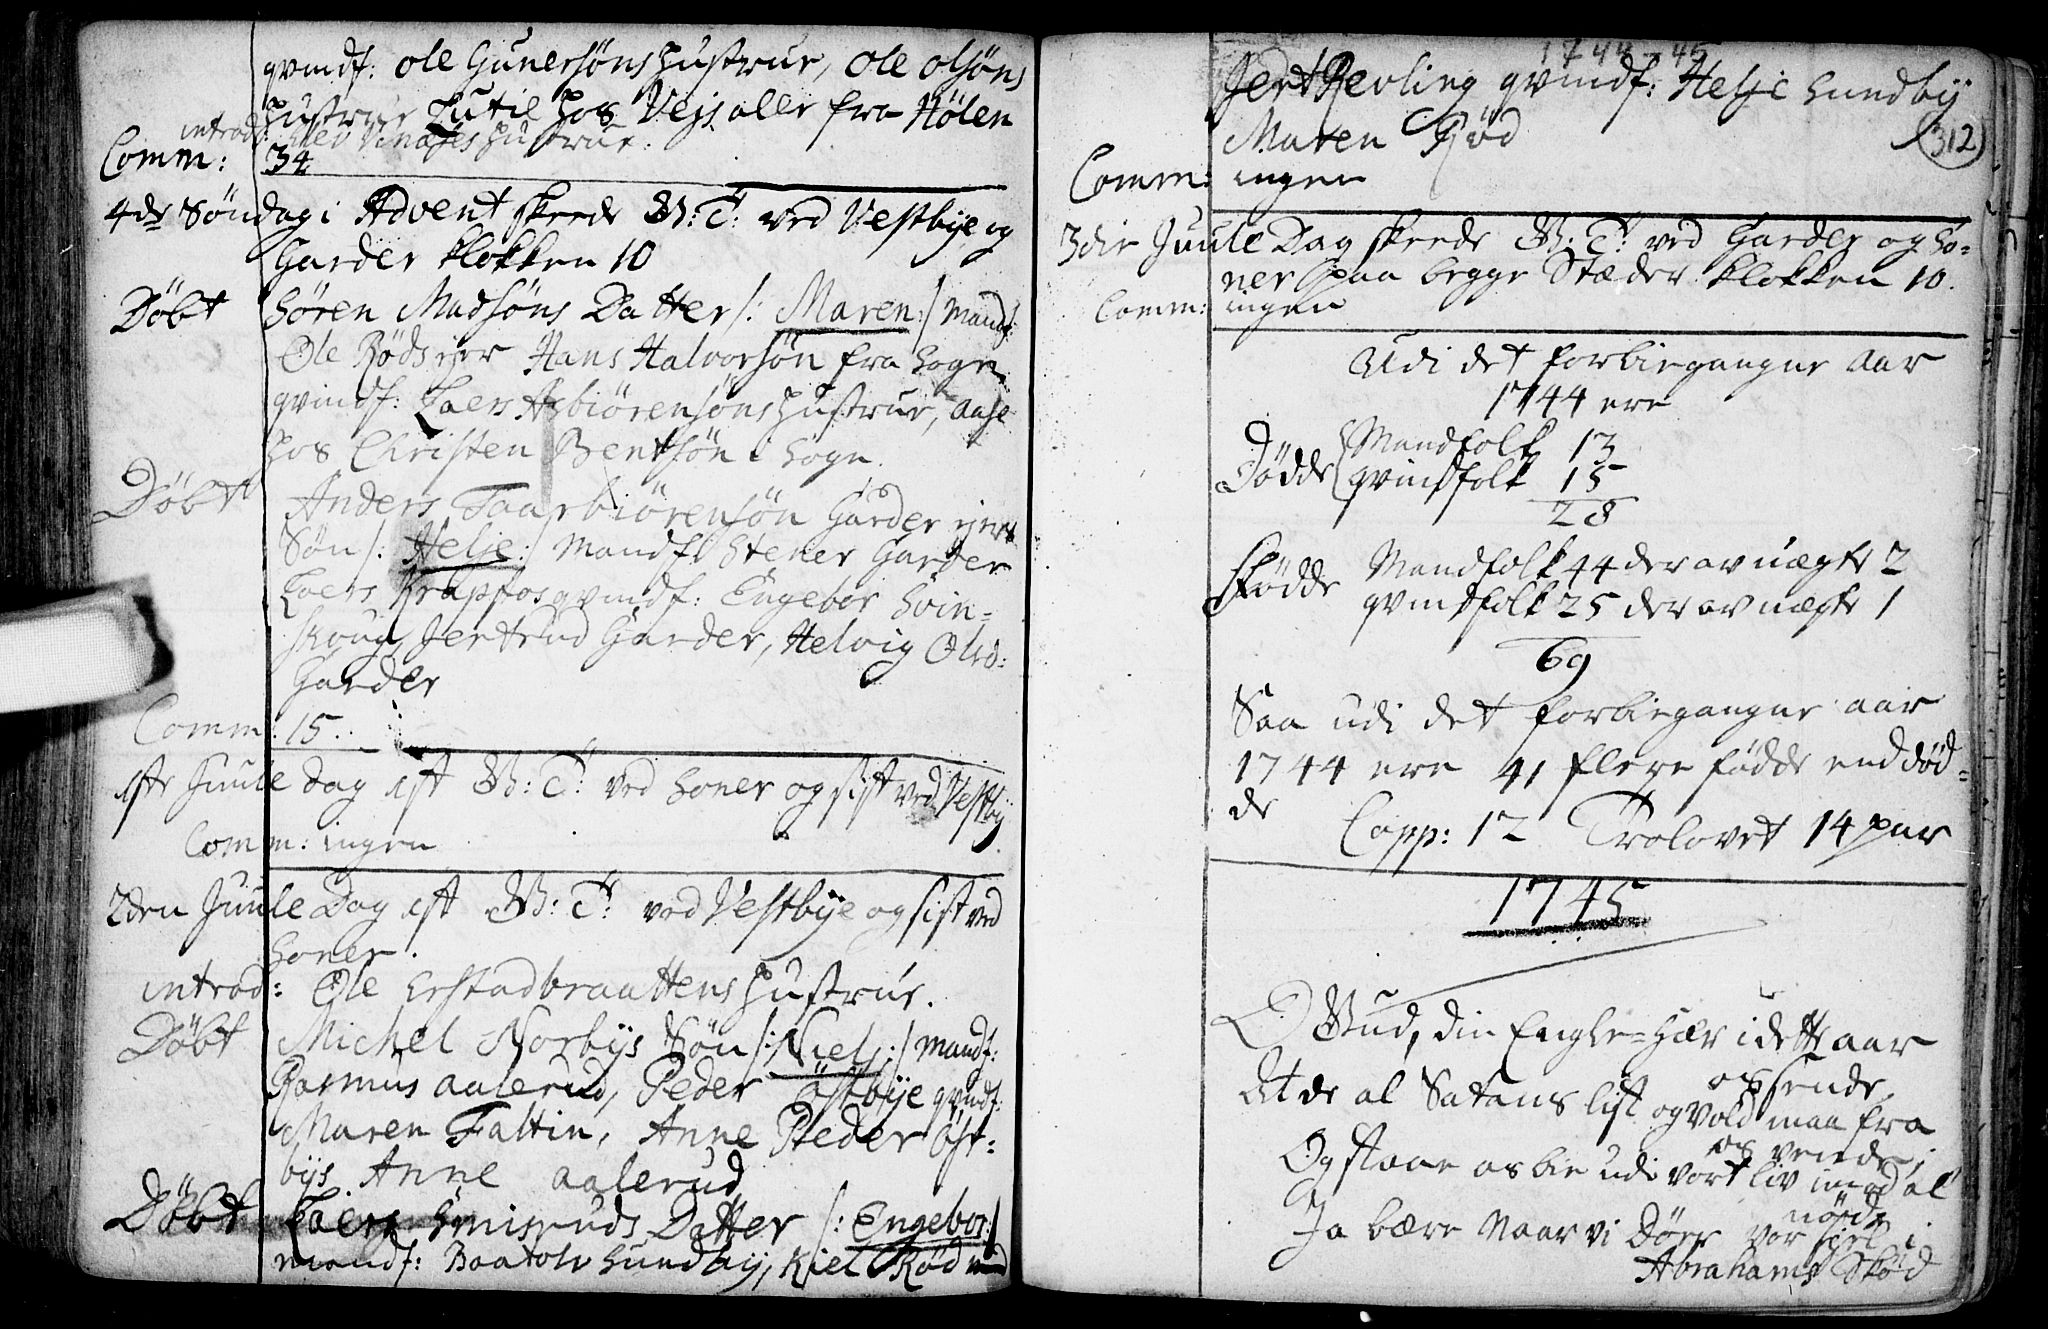 qvindf: Ole Gunersøns Hustrue, Ole Olsøns
Hustrue Lutil hos Vejs alle fra Hølen
introd: Hustrue.
Comm: 34
4de Søndag i Advent skeede G: T: ved Vestbye og
Garder klokken 10
Døbt Søren Madsøns Datter /: Maren :/ mandf:
Ole Røds Hans Halvorsøn fra Sogn
qvindf: Laers Asbiørensøns Hustrue, Aase
hos Christen Bentsøn i Sogn.
Døbt Anders Taarbiørensøn Garder ejers
Søn /: Helje :/ mandf: Stener Garder
Laers Krappos qvindf: Engebor Hvin-
skoug, Jertrud Garder, Helvig Ols:
Garder
Comm: 15.
1ste Juule Dag 1st G: T: ved Soner og sist ved Vestby
Comm: ingen
2den Juule Dag 1st G: T: ved Vestbye og sist ved
Soner.
introd: Ole Erstadbraattens Hustrue.
Døbt Michel Norbys Søn /: Niels :/ mandf:
Rasmus Aalerud, Peder Østbye qvindf:
Maren Faltin, Anne Peder Øst-
bys. Anne Aalerud
Døbt Laers Datter /: Engebor :/
mandf: Baatolv Hundby, Kiel Rød
1744-45
Jert Revling qvindf: Helje Hundby
Maren Rød
312
Comm: ingen
3die Juule Dag skeede G: T: ved Garder og So-
ner paa begge Stæder klokken 10.
Comm: ingen
Udi det forbiegangne Aar
1744 ere
Dødde Mandfolk 13
qvindfolk 15
28
Fødde Mandfolk 44 der av uægte 2
qvindfolk 25 der av uægte 1
69
Saa udi det forbiegangne aar
1744 ere 41 flere fødde end død-
de
Copp: 12 Trolovet 14 par
1745
O Gud, din Engle-Hær i dette aar
os sende,
At de al Satans list og vold maa fra
os vende;
Og staae os bie udi vort liv imod al
nød
Ja bære Naar vi Døer vor siel i
Abrahams Skød